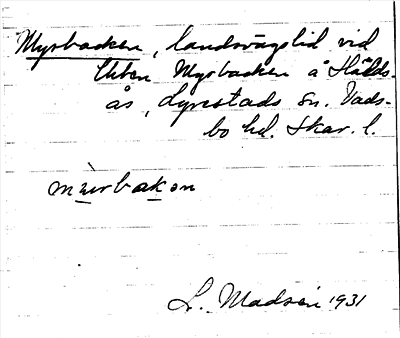 Myrbacken, landsvägslid vid
Uben Myrbacken å Hålds-
ås, Lyrestads sn. Vads-
bo hd. Skar. l.
mùrbakən
L. Madsén 1931